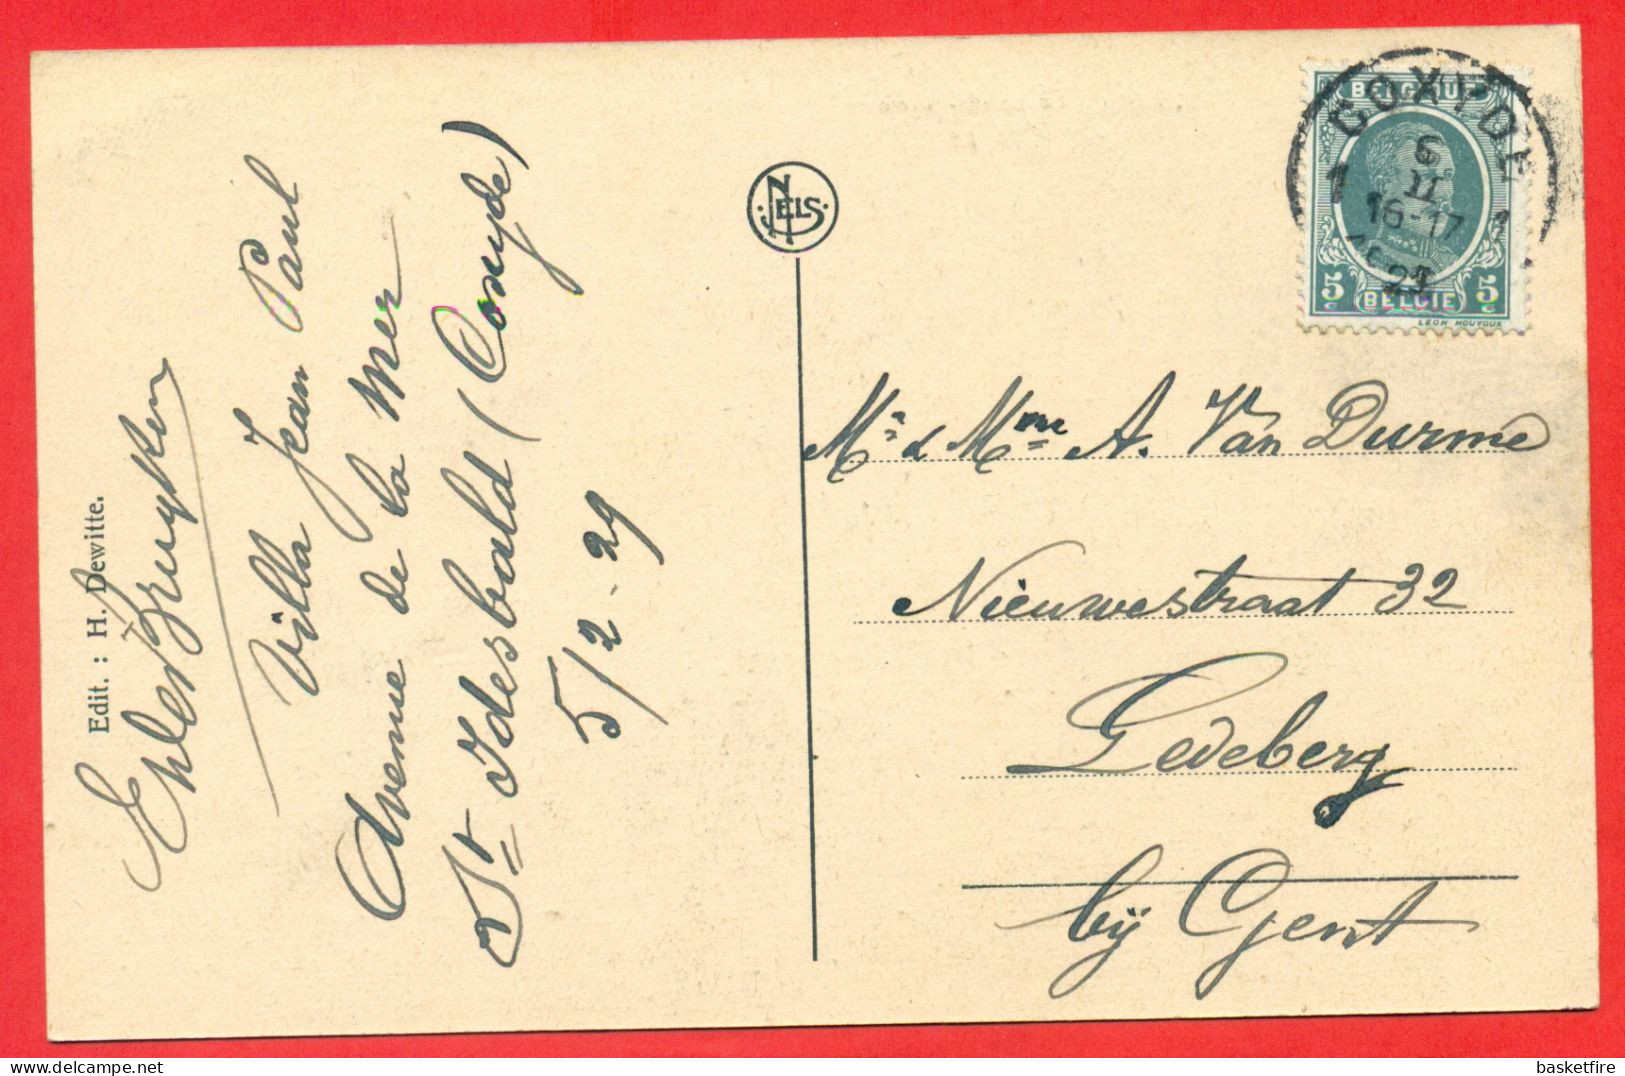 Edit. : H. Dewitte.
Villa Jean Paul
Avenue de la Mer
St Idesbald (Coxyde)
5/2-29
NELS
BELGIQUE
5 c 5 c
BELGIE
LEON HOUYOUX
COXYDE
1 1
6
II
16-17
Mr & Mme A. Van Durme
Nieuwestraat 32
Ledeberg
bij Gent
basketfire